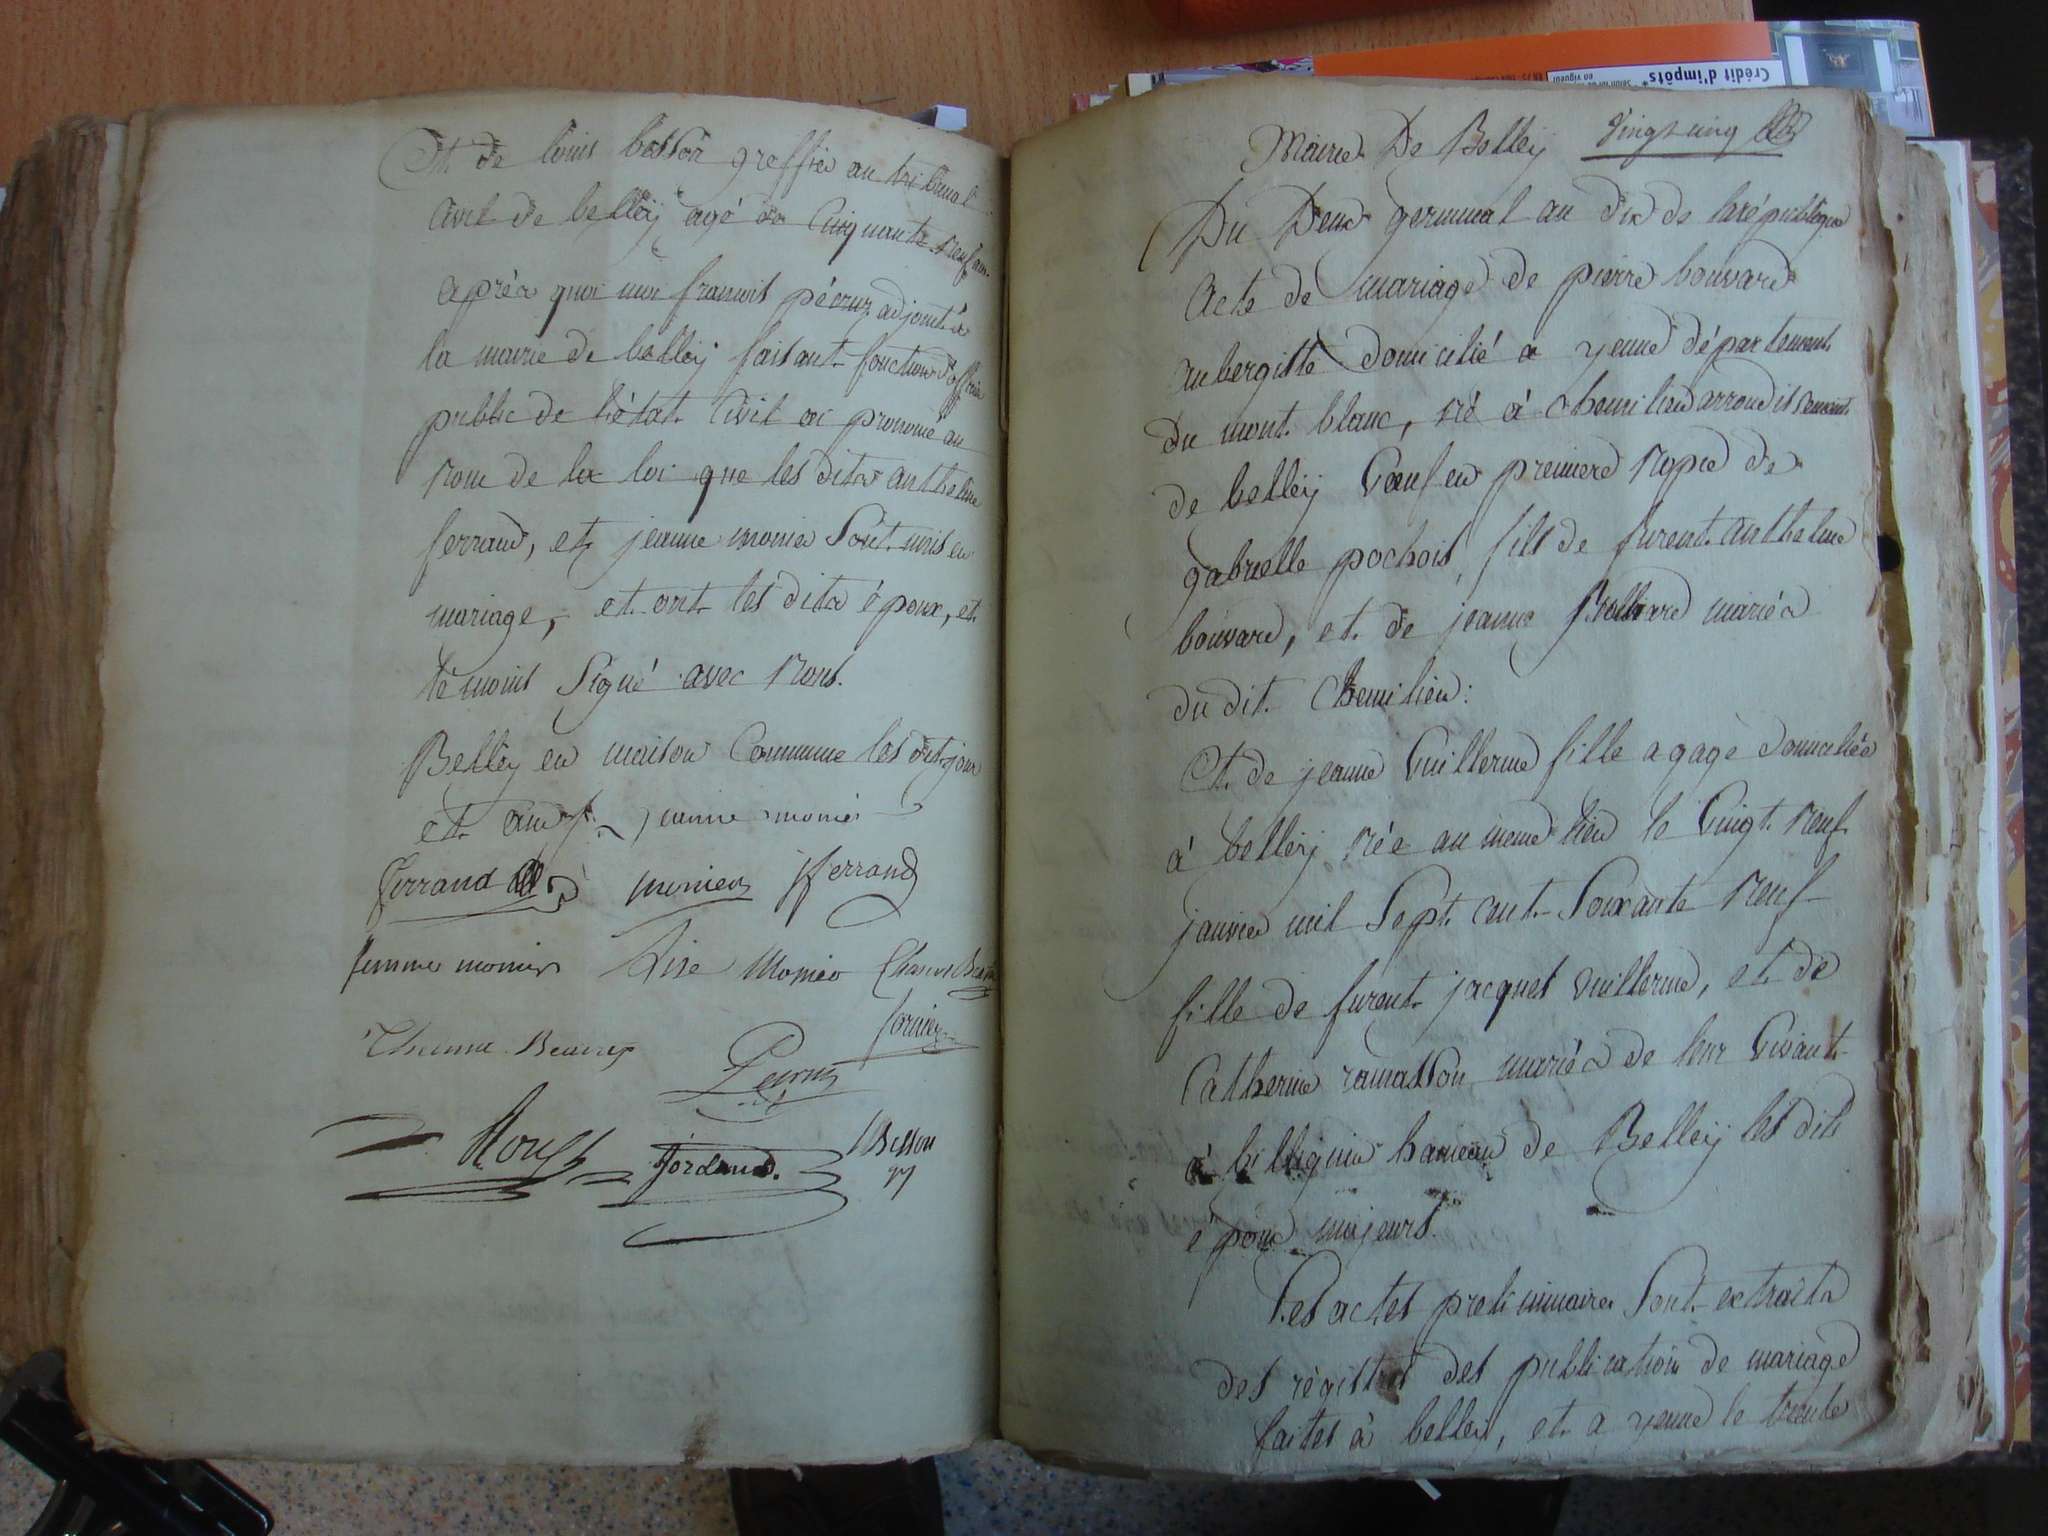 Et de louis besson greffier au tribunal
civil de belleÿ agé de Cinquante neuf ans
aprés quoi moi francois pécruz adjoint à
la mairie de belleÿ faisant fonction d'officier
public de l'état Civil ai prononcé au
nom de la loi que les dits anthelme
ferrand, et jeanne monier Sont unis en
mariage, et ont les dits époux, et
témoins Signé avec Nous.
Belleÿ en maison Commune les dits jour
et an jeanne monier
ferrand monier jferrand
femme monier Lise Monier
Besson
Mairie De Belleÿ Vingt cinq
Du Deux germinal an dix de la république
Acte de mariage de pierre bouvard
aubergiste domicilié a yenne département
du mont blanc, né à chemilieu arrondissement
de belleÿ Veuf en premiere Nopce de
gabrielle pochois, fils de furent anthelme
bouvard, et de jeanne mariés
du dit Chemilieu:
Et de jeanne Vuillerme fille a gagé domiciliée
à belleÿ née au meme lieu le Vingt Neuf
janvier mil Sept cent Soixante Neuf
fille de furent jacques Vuillerme, et de
Catherine ramasson mariés de leur Vivant
à billignin hameau de Belleÿ les dits
époux majeurs.
Les actes preliminaires Sont extraits
des régistres des publication de mariage
faites à belleÿ, et a yenne le trente
Crédit d'impôts*
en vigueur